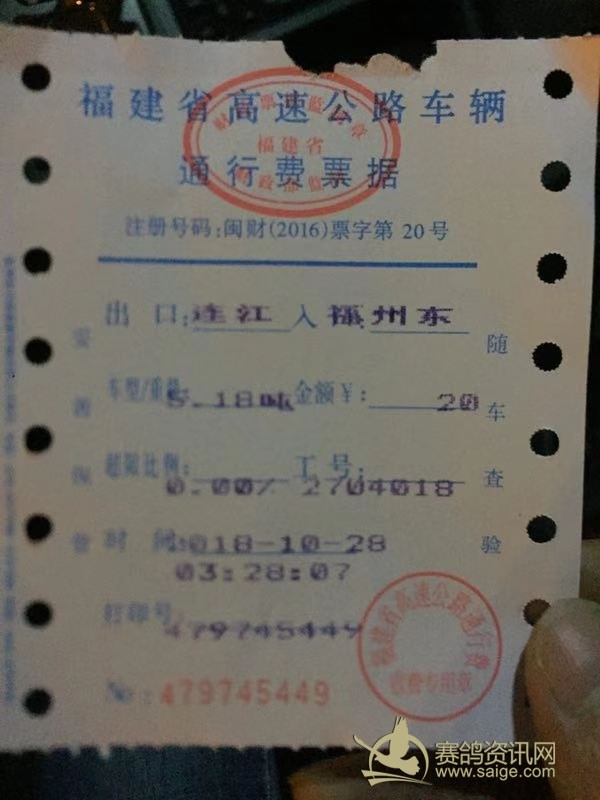 福建省高速公路车辆
福建省
通行费票据
注册号码:闽财(2016)票字第 20 号
出 口:连江 入 福州东
车型/重量 5.18吨 金额¥: 20
超限比例: 工 号:
0.00% 2704018
时 间:018-10-28
03:28:07
打印号
479745449
No: 479745449
随车查验
福建省高速公路通行费
收费专用章
赛鸽资讯网
www.saige.com